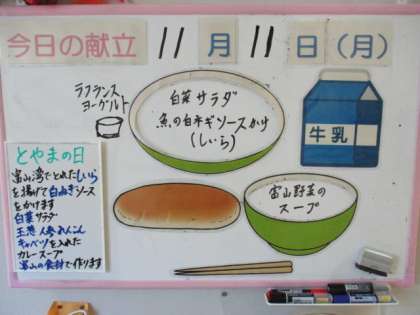 今日の献立 11月11日(月)
ラフランス
ヨーグルト
白菜サラダ
魚の白ネギソースかけ
(しいら)
牛乳
富山野菜の
スープ
とやまの日
富山湾でとれたしいら
を揚げて白ねぎソース
をかけます
白菜サラダ
玉葱 人参 れんこん
キャベツを入れた
カレースープ
富山の食材で作ります